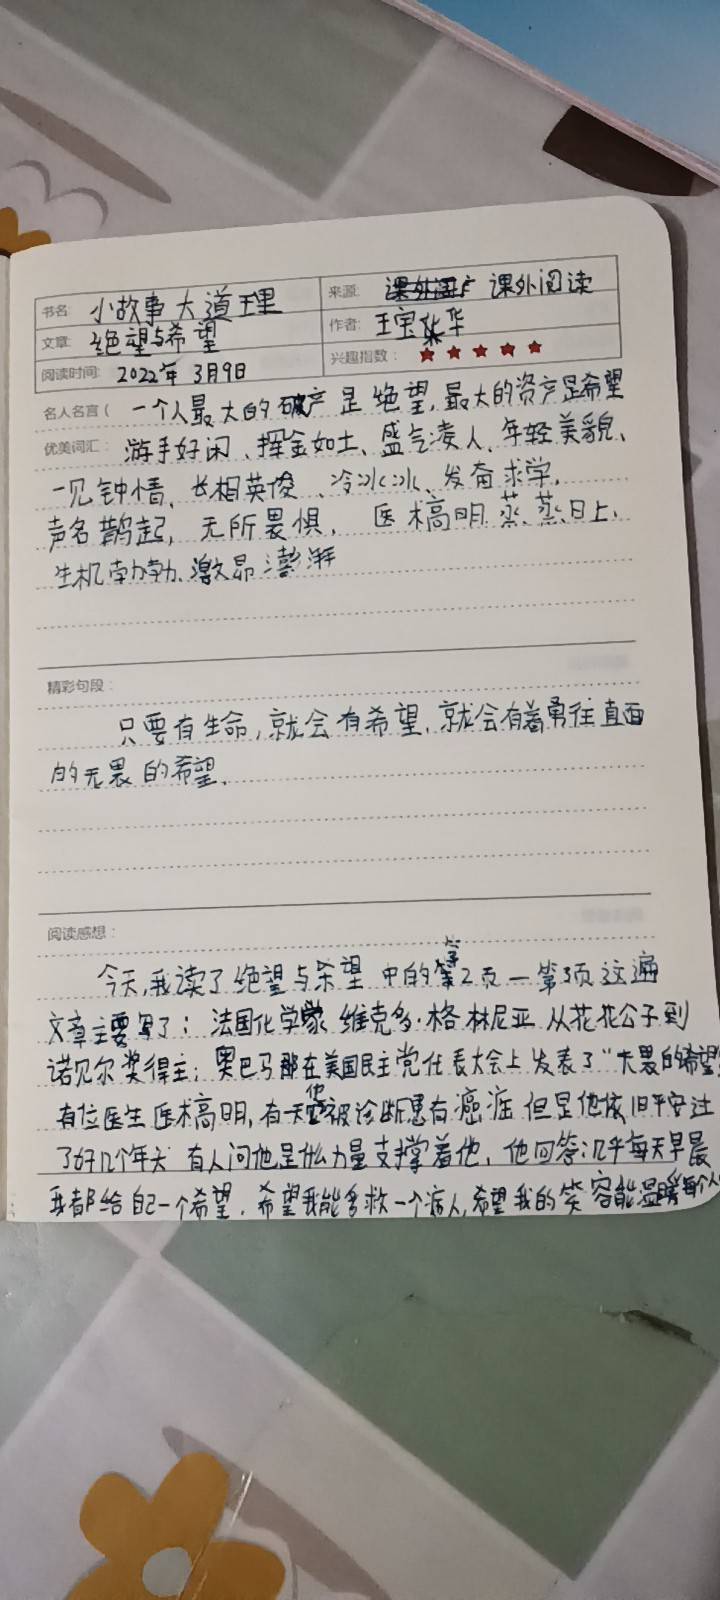 书名: 小故事大道理 来源: 课外阅读
文章: 绝望与希望 作者: 王宝华
阅读时间: 2022年3月9日 兴趣指数: ★★★★★
名人名言( 一个人最大的破产是绝望,最大的资产是希望
优美词汇: 游手好闲、挥金如土、盛气凌人、年轻美貌、
一见钟情、长相英俊、冷冰冰、发奋求学、
声名鹊起, 无所畏惧, 医术高明、蒸蒸日上、
生机勃勃、激昂澎湃
精彩句段:
只要有生命,就会有希望,就会有着勇往直面
的无畏的希望.
阅读感想:
今天,我读了绝望与希望 中的第2页—第3页 这遍
文章主要写了: 法国化学家 维克多·格林尼亚 从花花公子到
诺贝尔奖得主; 奥巴马 在美国民主党任表大会上发表了“大畏的希望
有位医生医术高明,有天他被诊断患有癌症 但是他依旧平安过
了好几个年 有人问他是什么力量支撑着他, 他回答:几乎每天早晨
我都给自己一个希望, 希望我能多救一个病人,希望我的笑容能温暖每个人